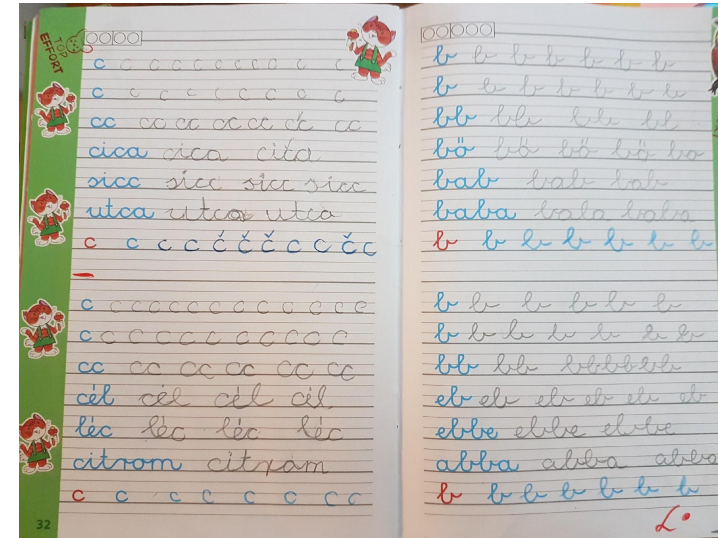 TOP
EFFORT
c c c c c c c c c c
c c c c c c c c c
cc cc cc cc cc cc cc
cica cica cica
sicc sicc sicc sicc
utca utca utca
c c c c č č č c c č c
c c c c c c c c c c c c
c c c c c c c c c c c
cc cc cc cc cc cc
cél cél cél cél
léc léc léc léc
citrom citrom
c c c c c c c c
32
b b b b b b b
b b b b b b b
bb bb bb bl
bö bö bö bö bo
bab bab bab
baba bala baba
b b b b b b b
b b b b b b
b b b b b b b
bb bb bbbbbb
eb eb eb eb eb eb
ebbe ebbe ebbe
abba abba abba
b b b b b b b
L